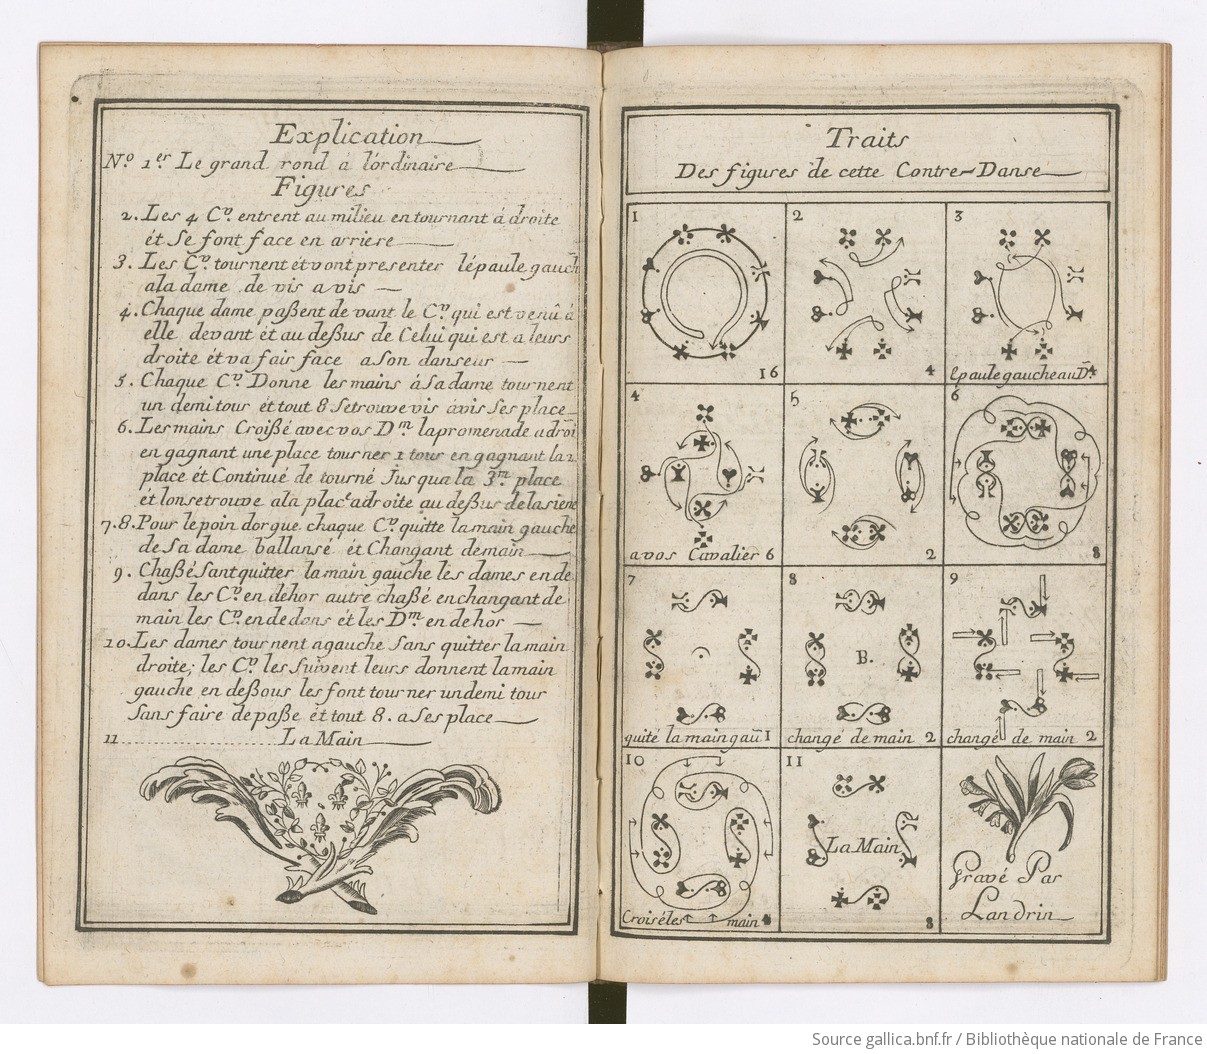 Explication
Nº 1er. Le grand rond á lórdinaire
Figures
2. Les 4 Crs. entrent au milieu en tournant á droite
ét Se font face en arriere
3. Les Crs. tournent ét vont presenter lépaule gauch
ala dame de vis a vis
4. Chaque dame paßent de vant le Cr. qui est venû á
elle devant ét au deßus de Celui qui est a leurs
droite ét va fair face a son danseur
5. Chaque Cr. Donne les mains á Sa dame tournent
un demi tour ét tout 8 Se trouve vis avis Ses place
6. Les mains Croißé avec vos Dm. la promenade a droi
en gagnant une place tourner 1 tour en gagnant la 2
place ét Continué de tourné Jusqua la 3m. place
ét lon se trouve ala place a droite au deßus de la sien
7. 8. Pour le poin dorgue chaque Cr. quitte la main gauche
de Sa dame ballansé ét Changant de main
9. Chaßé Sant quitter la main gauche lés dames en de
dans les Crs. en dehor autre chaßé en changant de
main les Crs. en dedans ét les Dm. en dehor
10. Les dames tournent a gauche Sans quitter la main
droite; les Crs. les Suivent leurs donnent la main
gauche en deßous les font tourner un demi tour
Sans faire de paße ét tout 8. a Ses place
11 .................... La Main
Traits
Des figures de cette Contre-Danse
1
16
2
4
3
lpaule gauche au D. 4
4
a vos Cavalier 6
5
2
6
8
7
quité la main gau 1
8
B.
changé de main 2
9
changé de main 2
10
Croisé les main 4
11
La Main
8
Gravé Par
Landrin
Source gallica.bnf.fr / Bibliothèque nationale de France